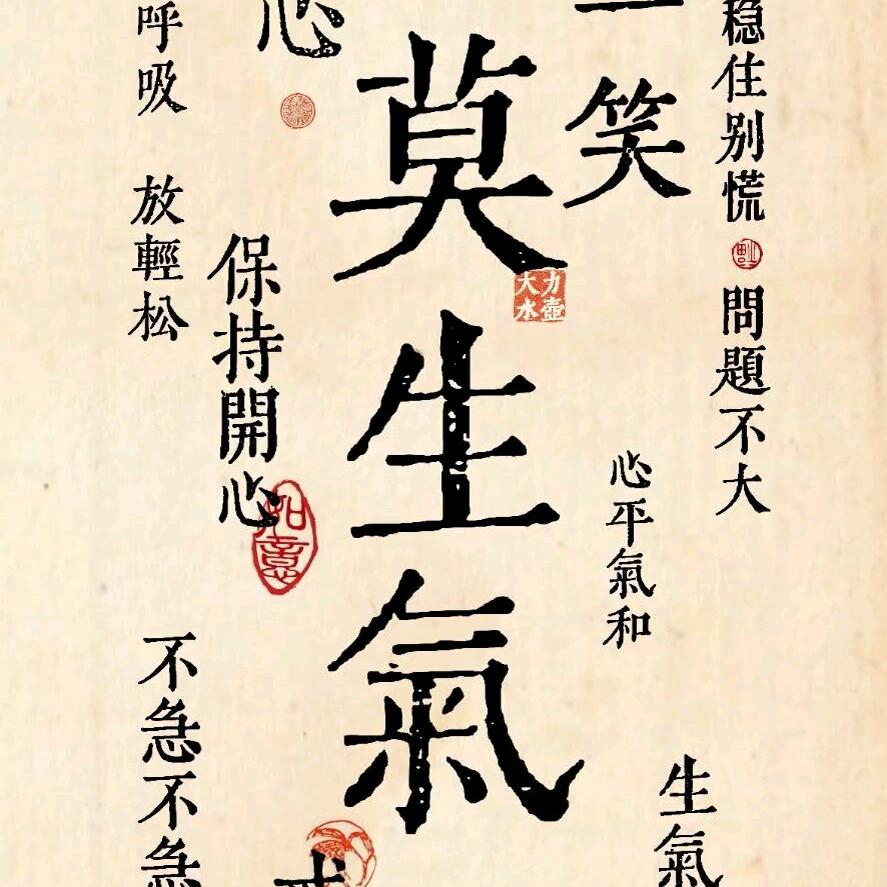 稳住别慌 問題不大
一笑
心平氣和
生氣
莫生氣
力壺
大水
心
保持開心
如意
呼吸 放輕松
不急不急